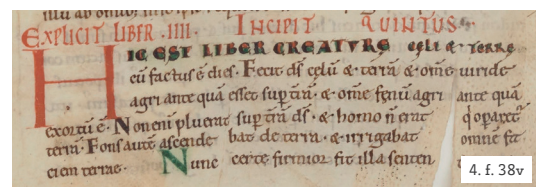 EXPLICIT LIBER .IIII. INCIPIT QUINTUS.
HIC EST LIBER CREATVRE celi & terre
cū factus ē dies. Fecit dſ celū & terrā & omē uiride
agri ante quā eſſet sup̄ t̄rā. & omē fenū agri ante quā
exortū ē. Non enī pluerat sup̄ t̄rā dſ. & homo n̄ erat q̇ opareť
terrā. Fons autē ascende bat de terra. & irrigabat omnē
ciem terrae. Nunc certe firmior fit illa senten
4. f. 38v